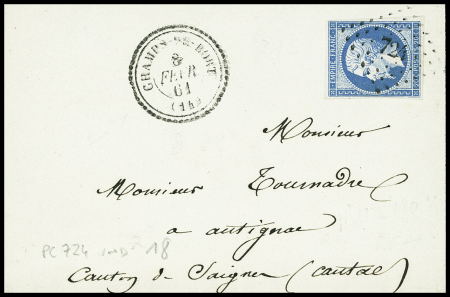 CHAMPS-DE-BORT
8
FEVR
61
(14)
EMPIRE FRANC
724
Monsieur
Monsieur Tournadre
a antignac
Canton de Saignes (cantal)
PC 724 ind 18